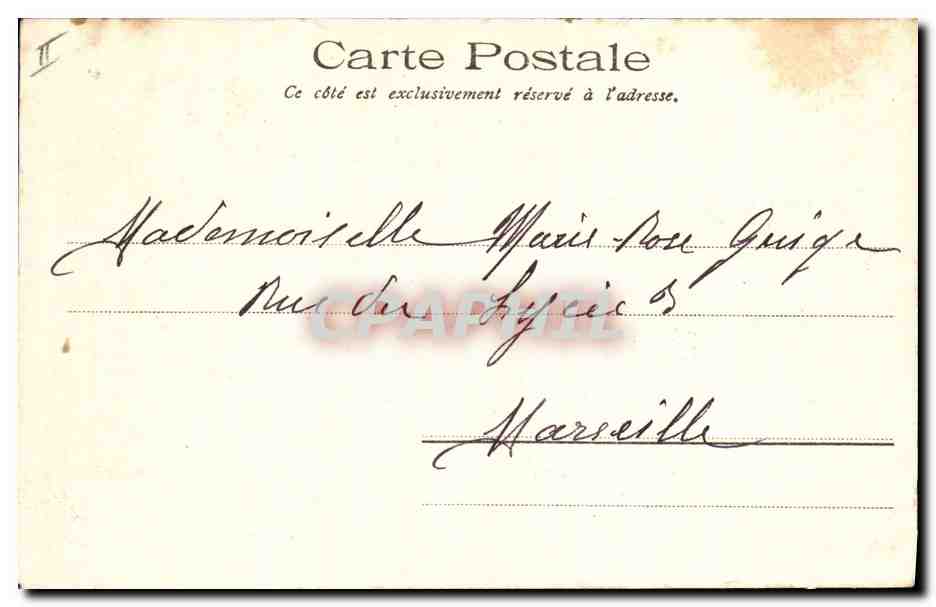 II
Carte Postale
Ce côté est exclusivement réservé à l'adresse.
Mademoiselle Marie-Rose
Rue du Lycée
CPAPHIL
Marseille